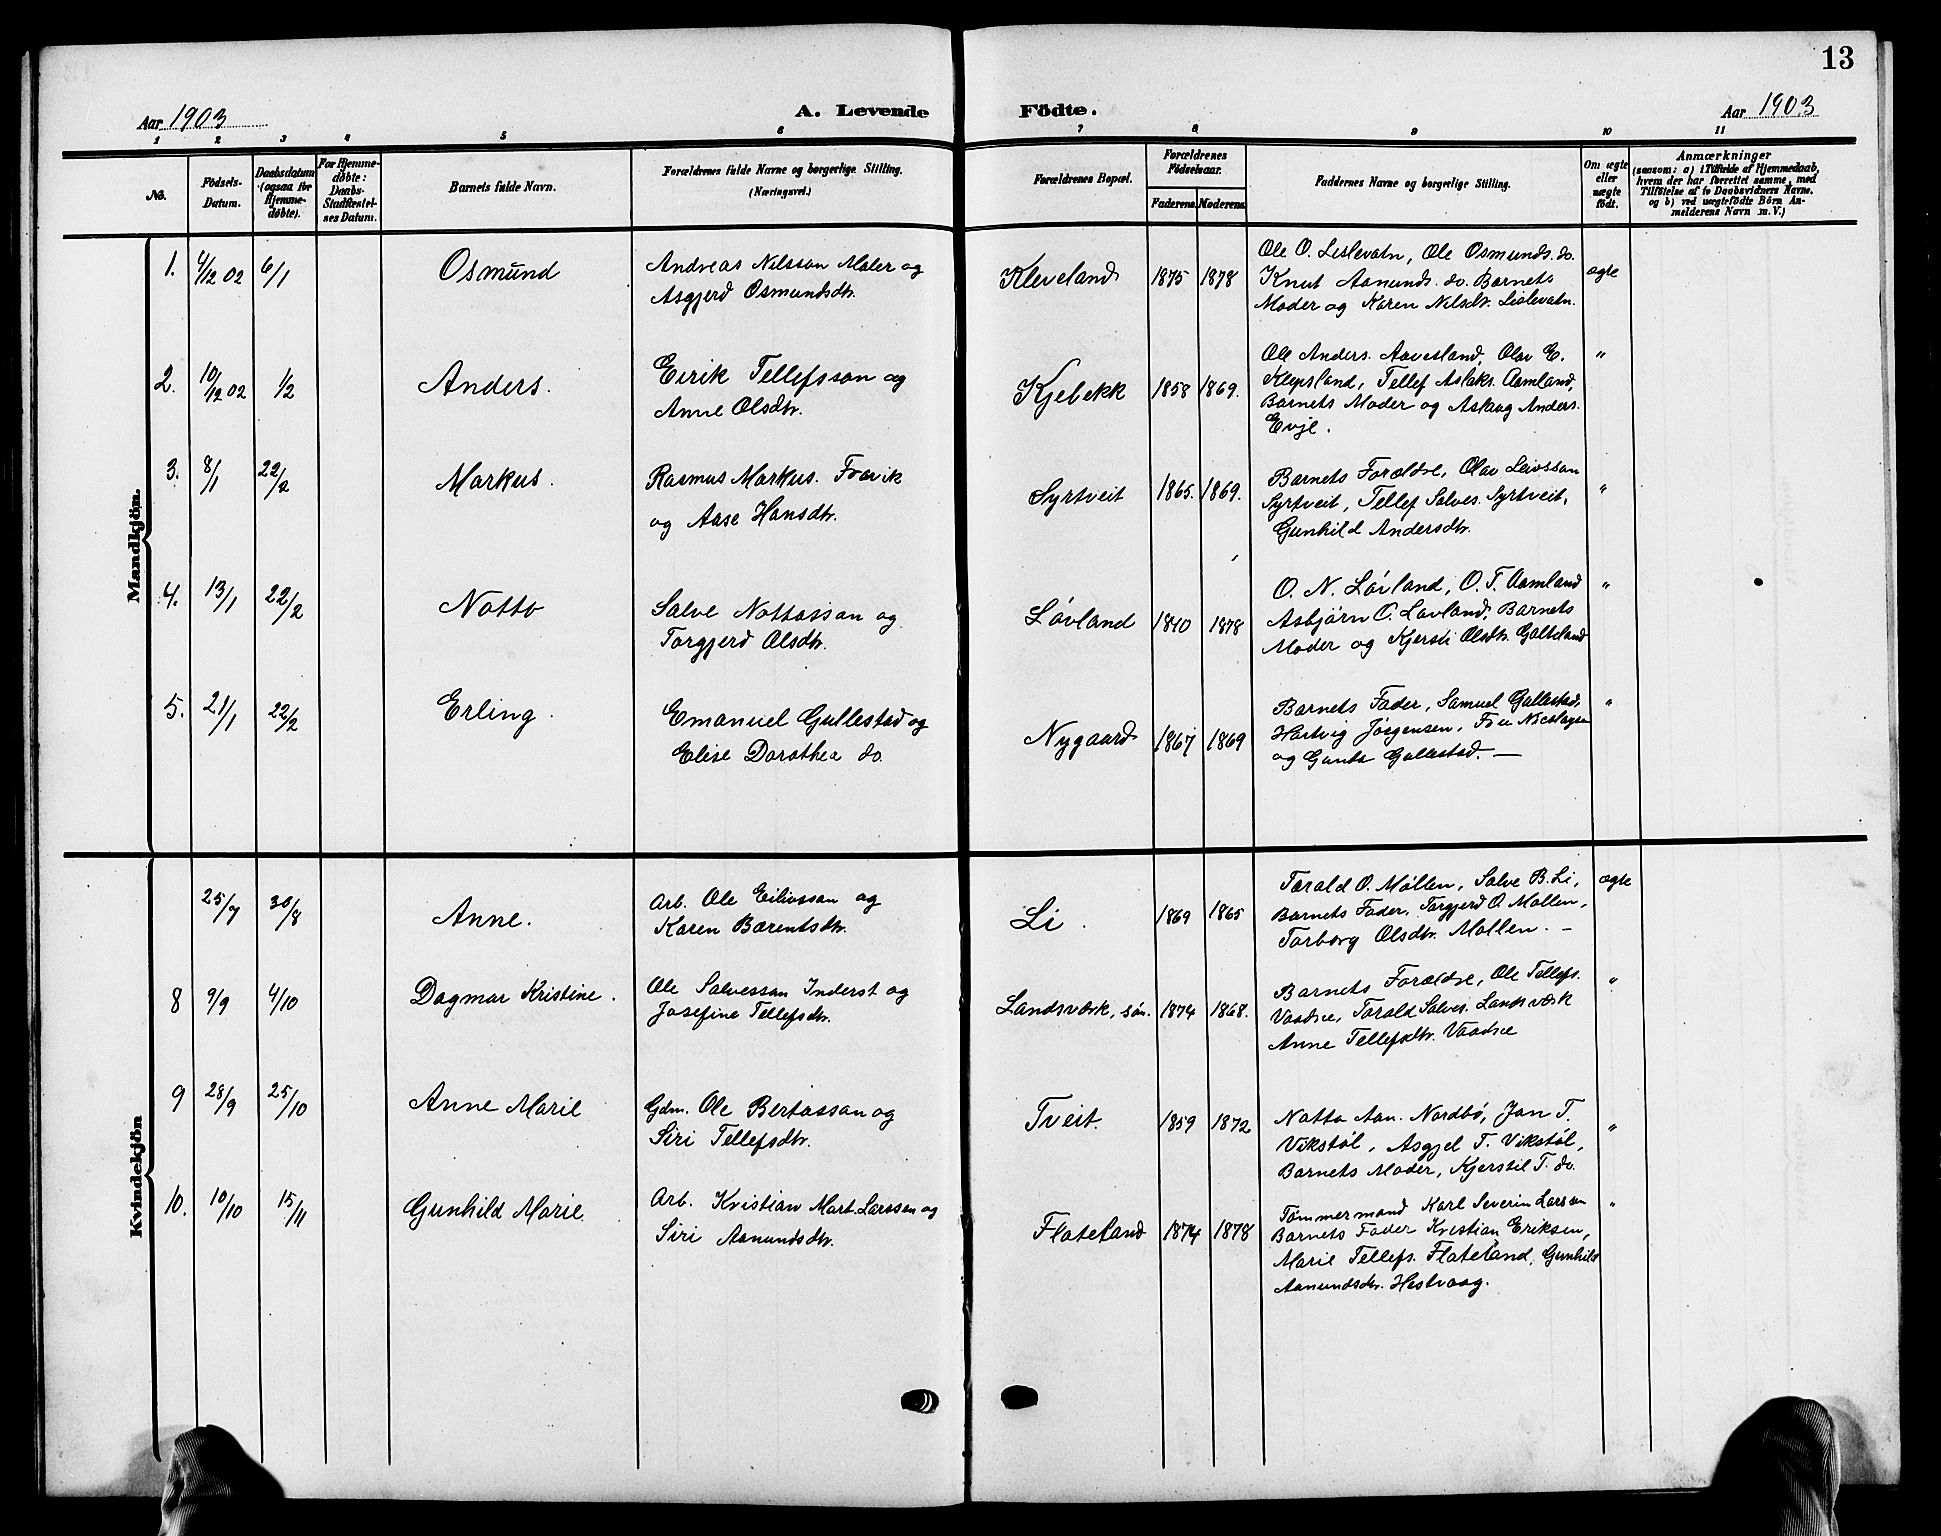 13
Aar 1903
A. Levende Födte.
Aar 1903
1 2 3 4 5 6 7 8 9 10 11
No.
Födsels-Datum.
Daabsdatum (ogsaa for Hjemmedöbte).
For Hjemmedöbte: Daabs-Stadfæstelses Datum.
Barnets fulde Navn.
Forældrenes fulde Navne og borgerlige Stilling. (Næringsvei.)
Forældrenes Bopæl.
Forældrenes Födselsaar.
Faderens Moderens
Faddernes Navne og borgerlige Stilling.
Om ægte eller uægte födt.
Anmærkninger
(saasom: a) i Tilfælde af Hjemmedaab, hvem der har forrettet samme, med Tilföielse af to Daabsvidners Navne, og b) ved uægtefödte Börn Anmelderens Navn m. V.)
Mandkjön.
1. 4/12 02 6/1 Osmund
Andreas Nilsson Maler og
Asgjerd Osmundsdtr.
Kleveland 1875 1878
Ole O. Lislevatn, Ole Osmunds. do.
Knut Aanunds. do. Barnets
Moder og Karen Nilsdtr. Lislevatn.
ægte
2. 10/12 02 1/2 Anders.
Eirik Tellefsson og
Anne Olsdtr.
Kjebekk 1858 1869.
Ole Anders. Aavesland, Olav E.
Klepsland, Tellef Aslaks. Aamland,
Barnets Moder og Aslaug Anders.
Evje.
"
3. 8/1 22/2 Markus.
Rasmus Markus. Fravik
og Aase Hansdtr.
Syrtveit 1865. 1869.
Barnets Forældre, Olav Leivsson
Syrtveit, Tellef Salves. Syrtveit,
Gunhild Andersdtr.
"
4. 13/1 22/2 Notto
Salve Nottosson og
Torgjerd Olsdtr.
Lövland 1840 1878
O. N. Lövland, O. T. Aamland
Asbjörn O. Lövland, Barnets
Moder og Kjersti Olsdtr. Galteland
"
5. 21/1 22/2 Erling.
Emanuel Gullestad og
Elise Dorothea do.
Nygaard 1867 1869
Barnets Fader, Samuel Gullestad,
Hartvig Jörgensen, Fru Nicolaysen
og Gunda Gullestad. —
"
Kvindekjön
25/7 30/8 Anne.
Arb. Ole Eilivsson og
Karen Barentsdtr.
Li. 1869 1865
Torald O. Möllen, Salve B. Li,
Barnets Fader, Torgjerd O. Mollen,
Torborg Olsdtr. Mollen. —
ægte
8 9/9 4/10 Dagmar Kristine.
Ole Salvesson Inderst og
Josefine Tellefsdtr.
Landsværk, sön. 1874 1868.
Barnets Forældre, Ole Tellefs.
Vaadne, Torald Salves. Landsværk
Anne Tellefsdtr. Vaadne
"
9 28/9 25/10 Anne Marie
Gdm. Ole Bertosson og
Siri Tellefsdtr.
Tveit. 1859 1872
Notto Aan. Nordbö, Jon T.
Vikstöl, Asgjel T. Vikstöl,
Barnets Moder, Kjerstil T. do.
"
10. 10/10 15/11 Gunhild Marie
Arb. Kristian Mart. Larssen og
Siri Aanundsdtr.
Flateland 1874 1878
Tömmermand Karl Severin Larssen
Barnets Fader Kristian Eriksen,
Marie Tellefs. Flateland, Gunhild
Aanundsdtr. Hestvaag.
"